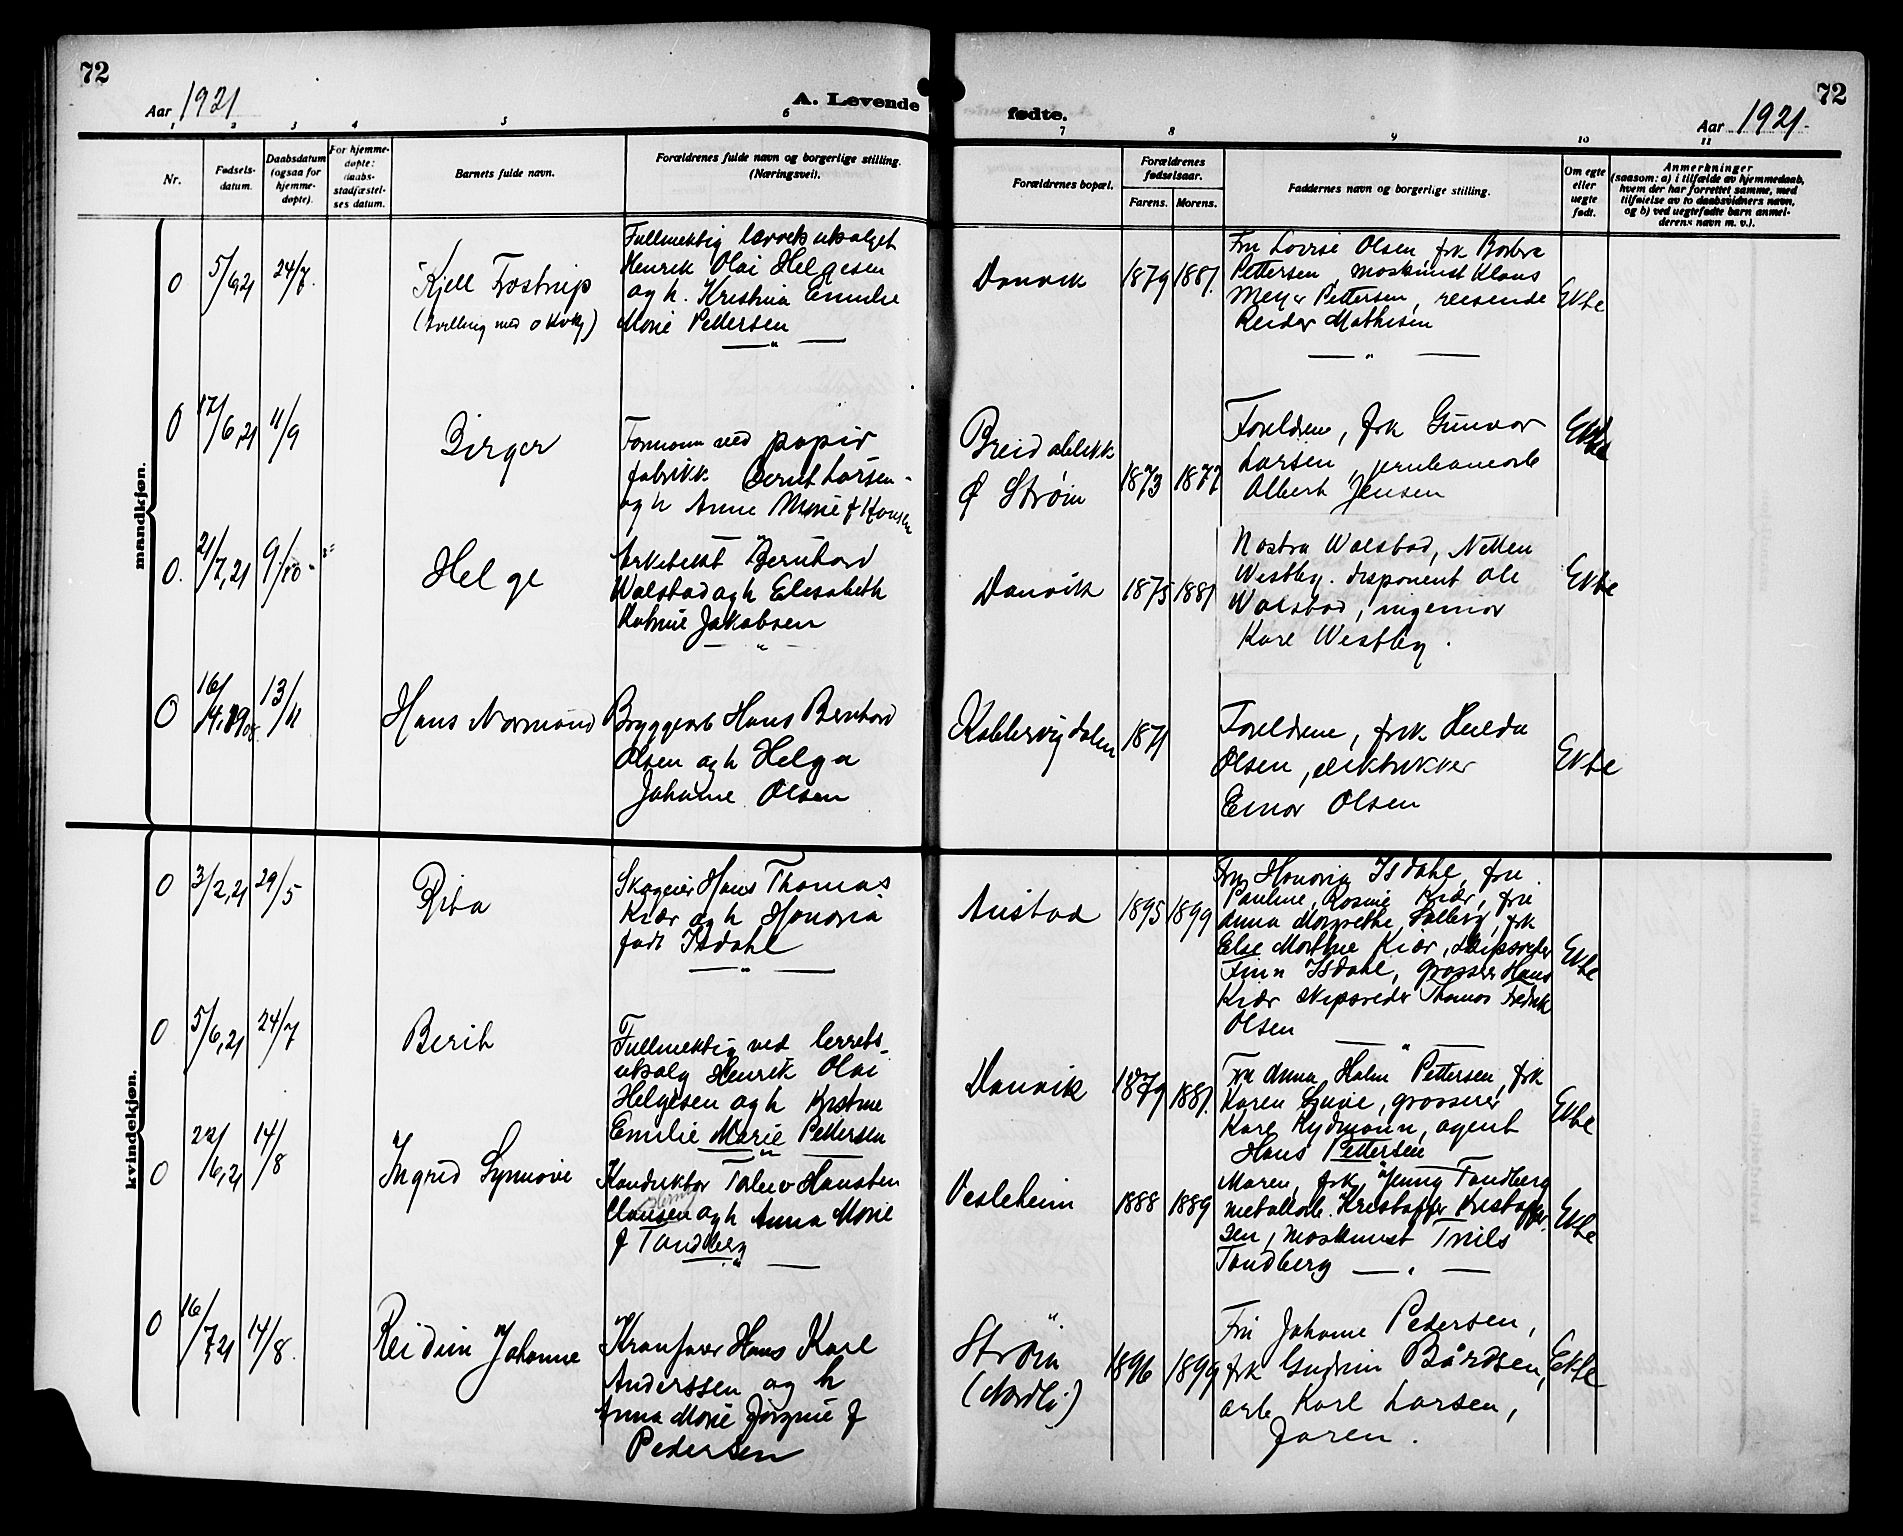 72
Aar 1921
A. Levende
1 2 3 4 5 6
Nr.
Fødsels-
datum.
Daabsdatum
(ogsaa for
hjemme-
døpte).
For hjemme-
døpte:
daabs-
stadfæstel-
ses datum.
Barnets fulde navn.
Forældrenes fulde navn og borgerlige stilling.
(Næringsvei).
mandkjøn.
0 5/6,21 24/7.
Kjell Frostrup
(tvilling med 0 kv)
Fullmektig
Henrik Olai Helgesen
og h. Kristina Emilie
Marie Pettersen
0 17/6,21 11/9
Birger
Formann ved papir
fabrikk Bernt Larsen
og h Anne Marie f Hansen
0. 21/7,21 9/10
Helge
Arkitekt Bernhard
Walstad og h Elisabeth
Katrine Jakobsen
0 16/ 13/11
Hans Normand
Bryggearb Hans Bernhard
Olsen og h Helga
Johanne Olsen
kvindekjøn.
0 3/2,21 29/5
Rita
Skogeier Hans Thomas
Kiær og h Honoria
født Isdahl
0 5/6,21 24/7
Berit
Fullmektig ved lerrets-
utsalg Henrik Olai
Helgesen og h Kristine
Emilie Marie Pettersen
0 22/6,21 14/8
Ingrid Synnøve
Konduktør Talev Hansten
Clausen og h Anna Marie
f Tandberg
0 16/7 21 14/8.
Reidun Johanne
Kranfører Hans Karl
Anderssen og h
Anna Marie Jørgine f
Pedersen
72
fødte.
Aar 1921.
7 8 9 10 11
Forældrenes bopæl.
Forældrenes
fødselsaar.
Farens. Morens.
Faddernes navn og borgerlige stilling.
Om egte
eller
uegte
født.
Anmerkninger
(saasom: a) i tilfælde av hjemmedaab,
hvem der har forrettet samme, med
tilføielse av to daabsvidners navn,
og b) ved uegtefødte barn anmel-
derens navn m. v.).
Danvik 1879 1881.
Fru Lovise Olsen, frk Borbra
Pettersen, maskinist Klaus
Meyer Pettersen, reisende
Reidar Mathisen
Ekte
Breidablikk
Ø Strøm
1873 1877
Foreldrene, frk Gunvor
Larsen, jernbanearb
Albert Jensen
Ekte
Danvik 1875 1881
Nastra Walstad, Netten
Westby. disponent Ole
Walstad, ingeniør
Kare Westby.
Ekte
Kobbervigdalen 1871
Foreldrene, frk Hulda
Olsen,
Einar Olsen
Ekte
Austad 1895 1899
Fru Honoria Isdahl, fru
Pauline Rosine Kiær, fru
Anna Margrethe Solberg, frk
Else Marthine Kiær, skipsreder
Finn Isdahl, grosser Hans
Kiær skipsreder Thomas Fredrik
Olsen
Ekte
Danvik 1879 1881.
Fru Anna Holm Pettersen, frk
Karen Gavie, grosserer
Karl Rydmann, agent
Hans Pettersen
Ekte
Vesleheim 1888 1889
Moren, frk Jenny Tandberg
metallarb. Kristoffer Kristoffer-
sen, maskinist Trúls
Tandberg
Ekte
Strøm
(Nordli)
1896 1899
Fru Johanne Pedersen,
frk Gudrun Bårdsen,
arb Karl Larsen,
Faren.
Ekte